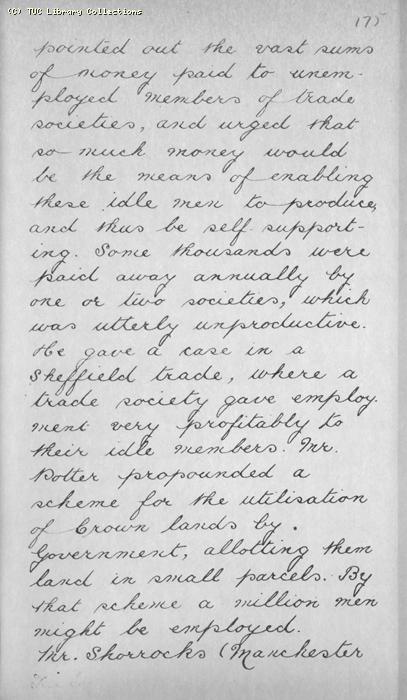 (C) TUC Library Collections
175
pointed out the vast sums
of money paid to unem-
ployed members of trade
societies, and urged that
so much money would
be the means of enabling
these idle men to produce,
and thus be self-support-
ing. Some thousands were
paid away annually by
one or two societies, which
was utterly unproductive.
He gave a case in a
Sheffield trade, where a
trade society gave employ-
ment very profitably to
their idle members. Mr.
Potter propounded a
scheme for the utilisation
of Crown lands by
Government, allotting them
land in small parcels. By
that scheme a million men
might be employed.
Mr. Shorrocks (Manchester